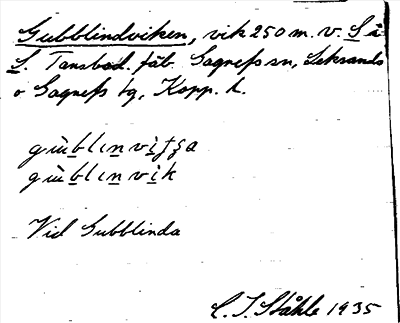 Gubblindviken, vik 250 m. v. S å
S. Tansbod. fäb. Gagnefs sn, Leksands
o Gagnefs tg, Kopp. l.
gu̇blɪnvi
gu̇blɪnvik
Vid Gubblinda
C. I. Ståhle 1935